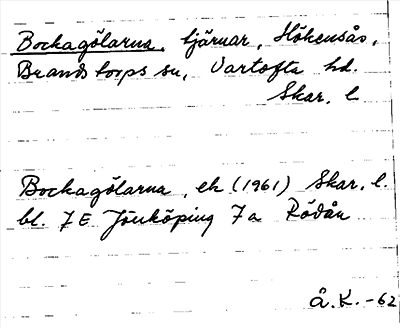 Bockagölarna, tjärnar, Hökensås,
Brandstorps sn, Vartofta hd.
Skar. l.
Bockagölarna, ek (1961) Skar. l.
bl. 7 E Jönköping 7 a Rödån
Å. K. -62